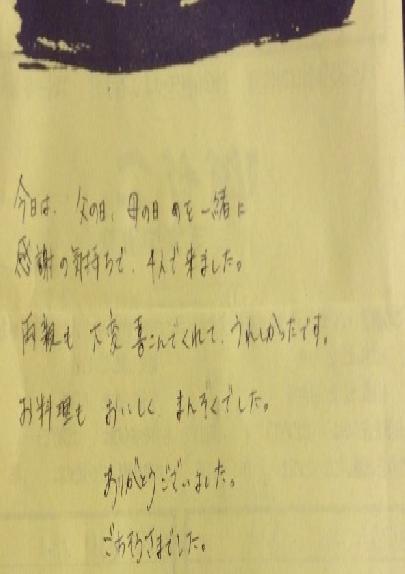 今日は、父の日、母の日のを一緒に
感謝の気持ちで、4人で来ました。
両親も 大変 喜こんでくれて、うれしかったです。
お料理も おいしく まんぞくでした。
ありがとうございました。
ごちそうさまでした。